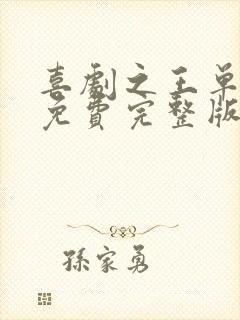 喜劇之王單
免費完整版
孫家勇